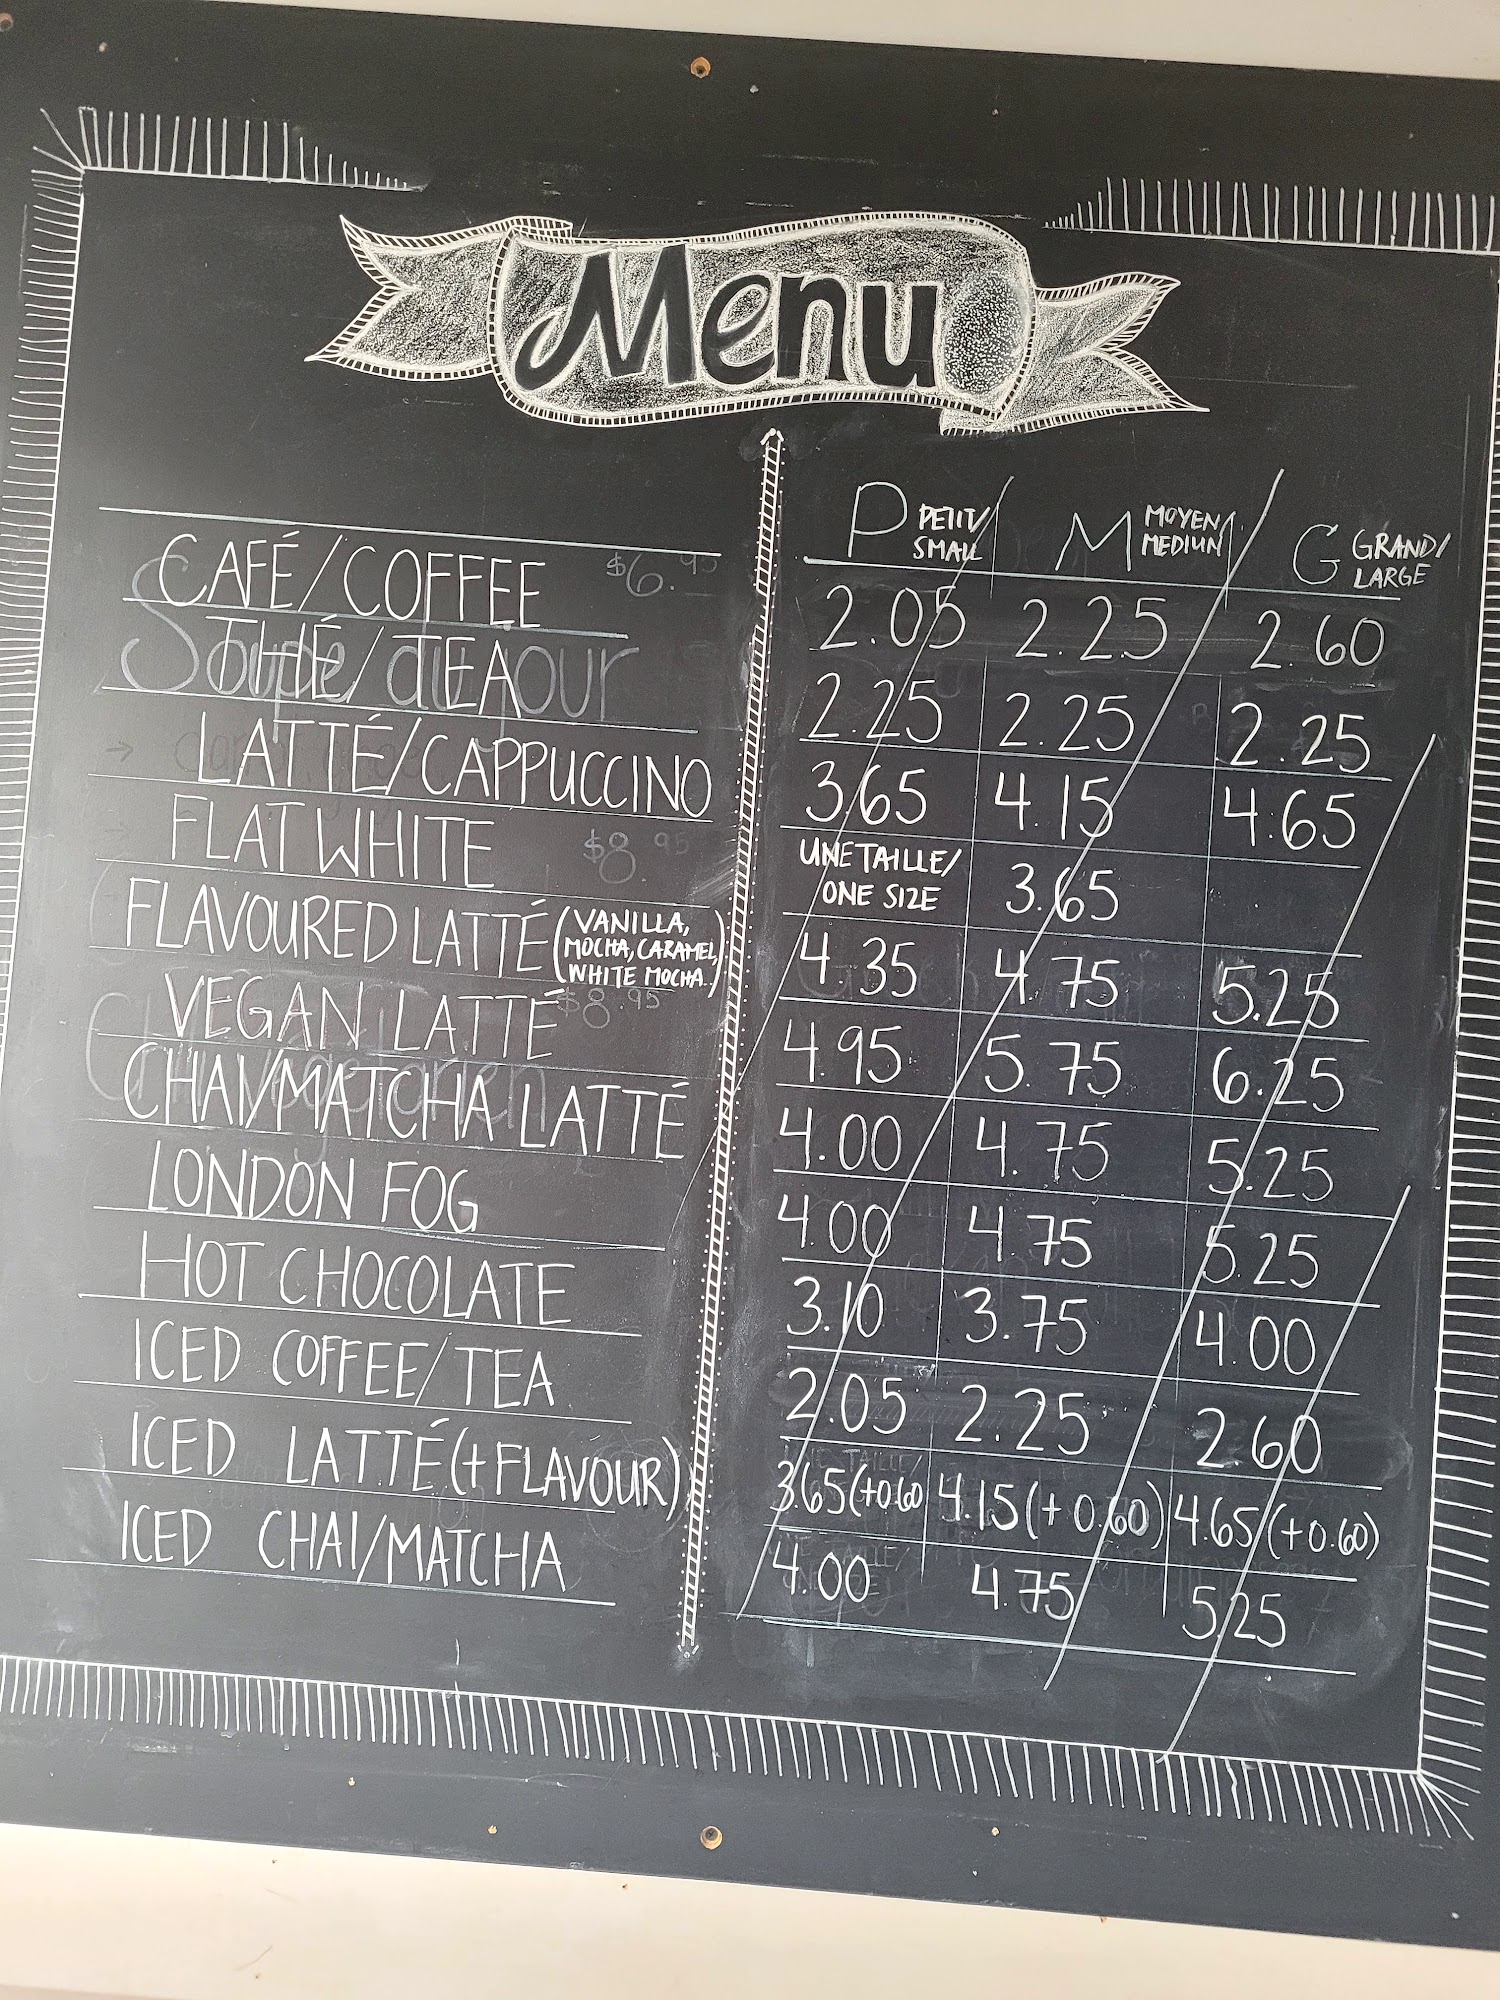 Menu
P PETIT/ SMALL M MOYEN/ MEDIUM G GRAND/ LARGE
CAFÉ/COFFEE 2.05 2.25 2.60
$6.95
THÉ/TEA 2.25 2.25 2.25
Soupe du jour
LATTÉ/CAPPUCCINO 3.65 4.15 4.65
FLAT WHITE UNE TAILLE/ ONE SIZE 3.65
$8.95
FLAVOURED LATTÉ (VANILLA, MOCHA, CARAMEL, WHITE MOCHA.) 4.35 4.75 5.25
VEGAN LATTÉ 4.95 5.75 6.25
$8.95
CHAI/MATCHA LATTÉ 4.00 4.75 5.25
LONDON FOG 4.00 4.75 5.25
HOT CHOCOLATE 3.10 3.75 4.00
ICED COFFEE/TEA 2.05 2.25 2.60
ICED LATTÉ (+FLAVOUR) 3.65 (+0.60 4.15 (+0.60) 4.65 (+0.60)
ICED CHAI/MATCHA 4.00 4.75 5.25